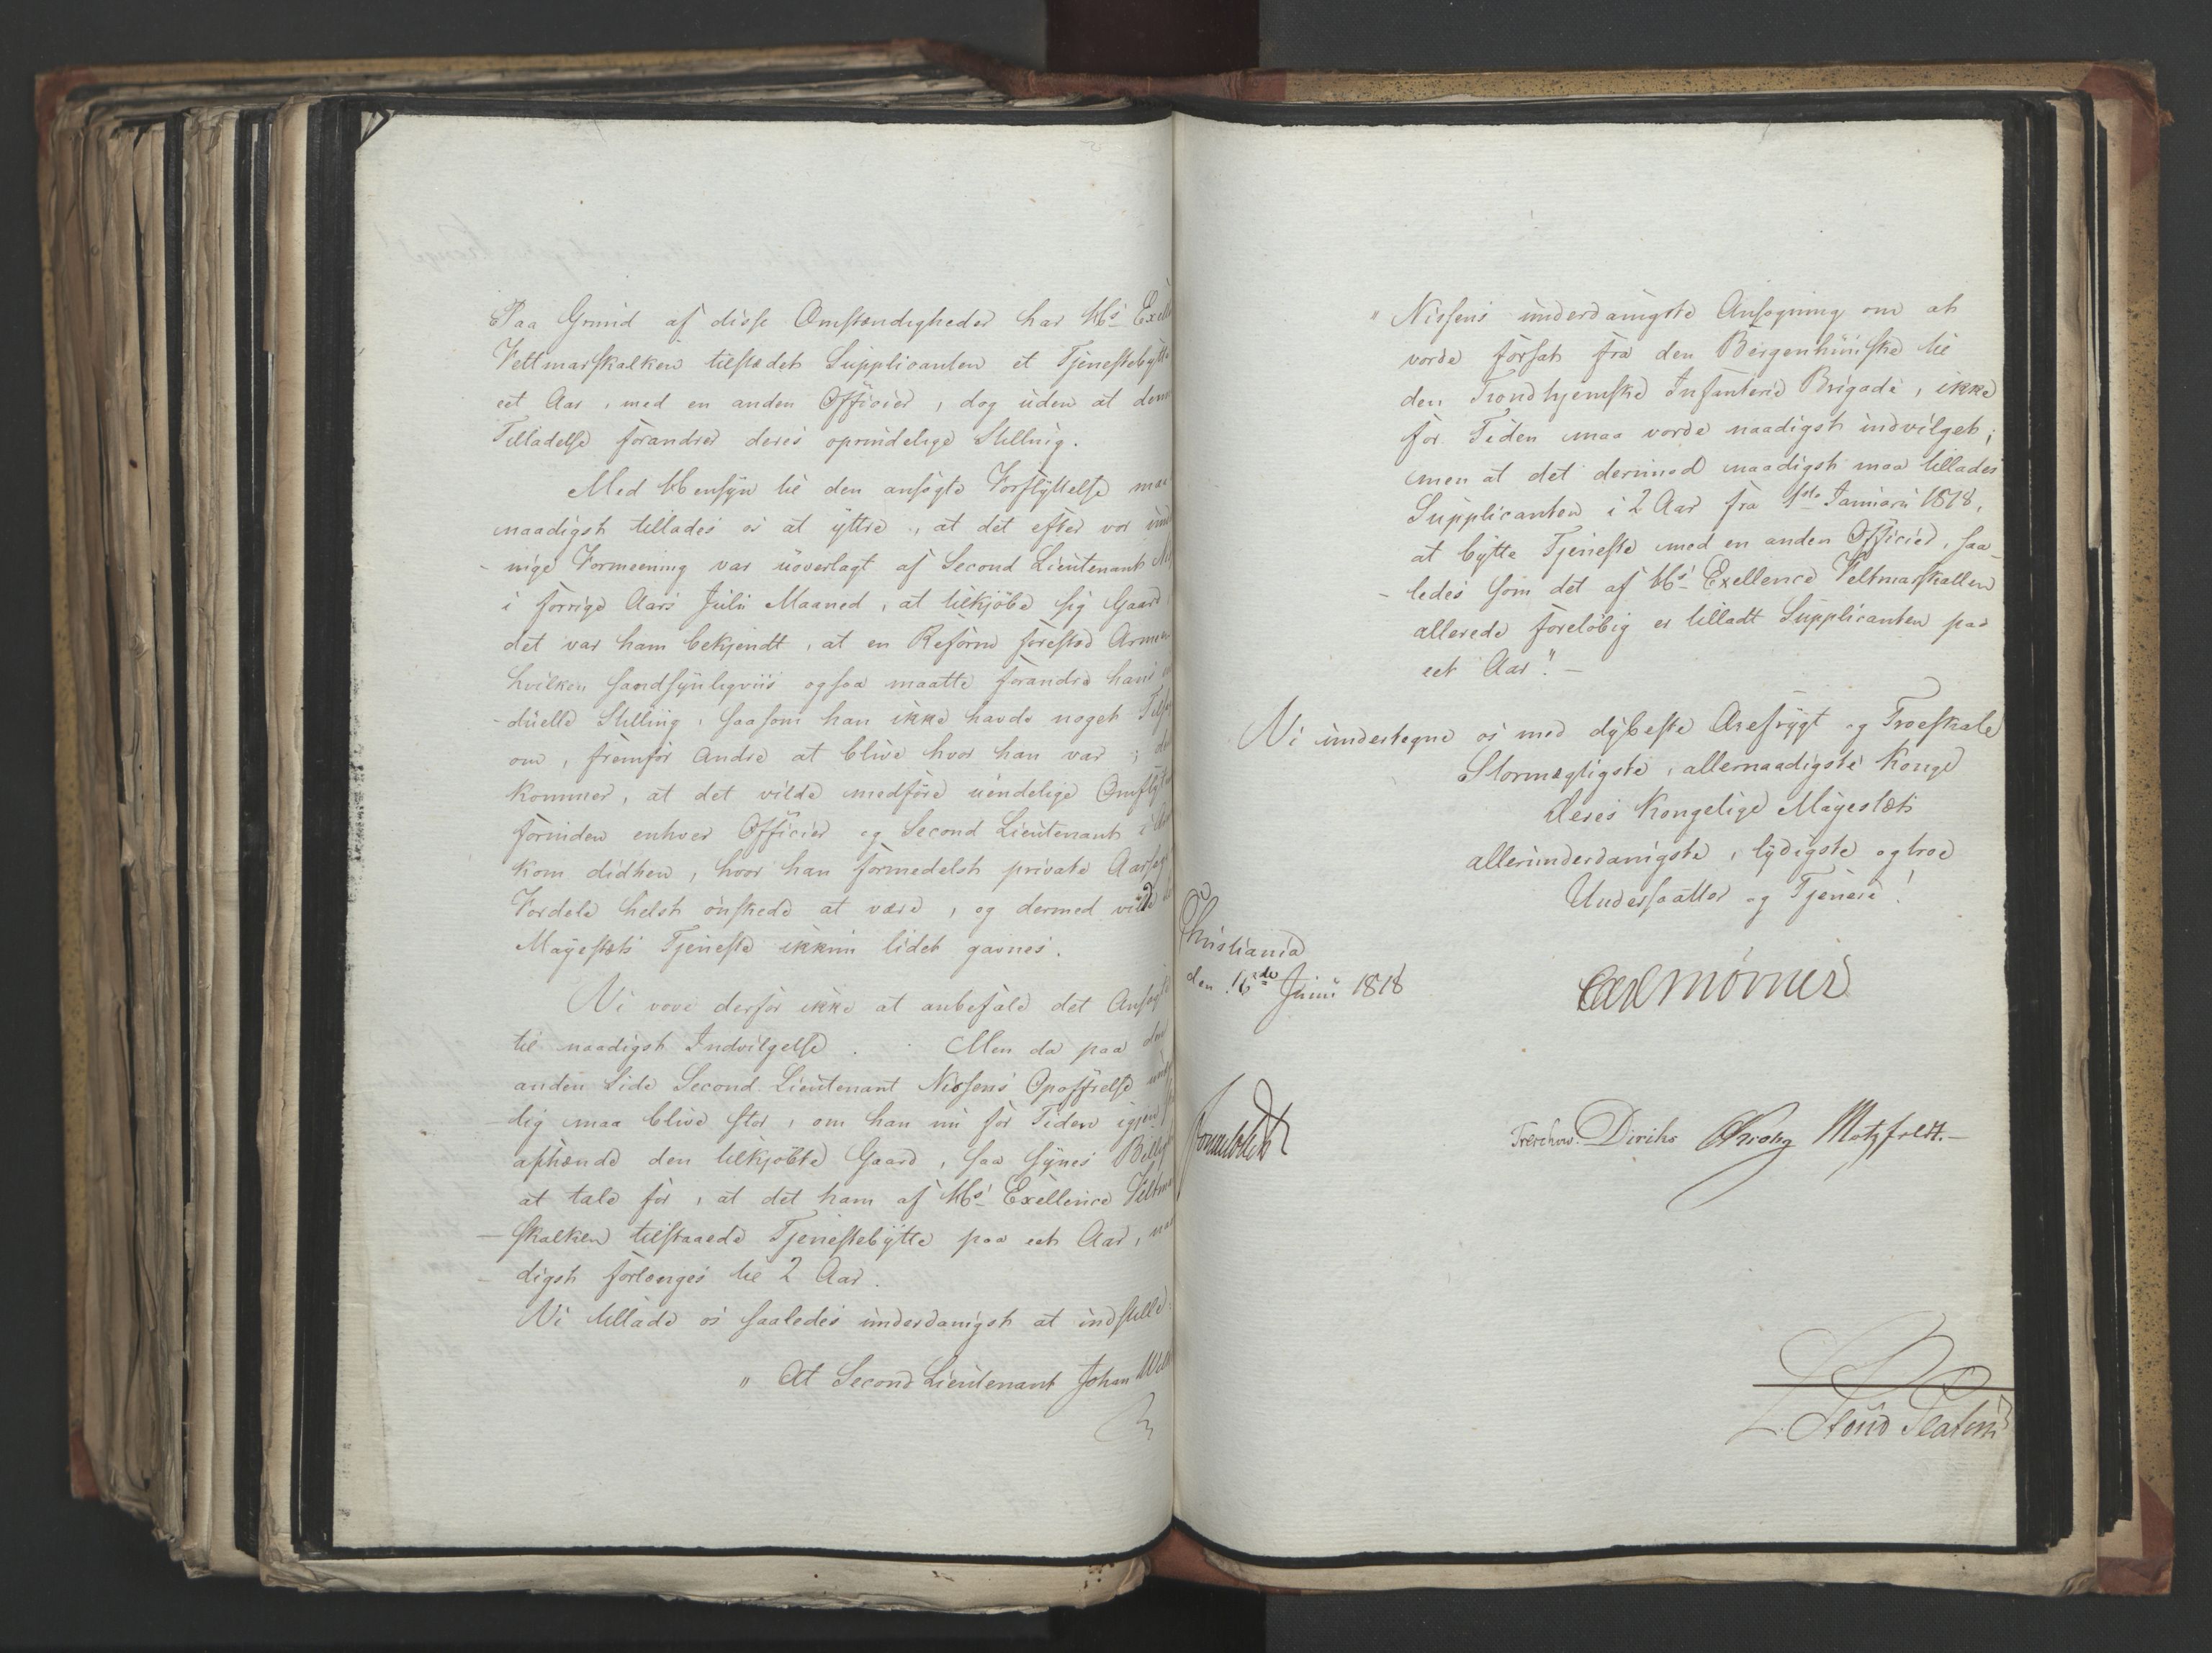 Paa Grund af disse Omstændigheder har Hs Exell
Feltmarskalken tilstædet Supplicanten et Tjenestebytte
eet Aar, med en anden Officier, dog uden at denne
Tilladelse forandrer deres oprindelige Stilling.
Med Hensyn til den ansøgte Forflyttelse maa
naadigst tillades os at yttre, at det efter vor und
- nige Formeening var uoverlagt af Second Lieutenant
i forrige Aars Julii Maaned, at tilkjöbe sig Gaard,
det var ham bekjendt, at en Reform forestod Armeen
hvilken sandsynligviis ogsaa maatte forandre hans
- duelle Stilling, saasom han ikke havde noget
om, fremfor Andre at blive hvor han var;
kommer, at det vilde medföre uendelige Omflyt
forinden enhver Officier og Second Lieutenant i
kom didhen, hvor han formedelst private Aarsag
Fordele helst önskede at være, og dermed vilde
Mayestæts Tjeneste ikkun lidet gavnes.
Vi vove derfor ikke at anbefale det Ansøgte
til naadigst Indvilgelse. Men da paa den
anden Side Second Lieutenant Nissens Opoffrelse
- dig maa blive stor, om han nu for Tiden igjen
afhænde den tilkjöbte Gaard, saa synes Billig
at tale for, at det ham af Hs Exellence Feltmar
- skalken tilstaaede Tjenestebytte paa eet Aar, naa
digst forlænges til 2 Aar.
Vi tillade os saaledes underdanigst at indstille:
" At Second Lieutenant Johan
" Nissens underdanigste Ansøgning om at
vorde forsat fra den Bergenhuusske til
den Trondhjemske Infanterie Brigade, ikke
for Tiden maa vorde naadigst indvilget;
men at det derimod naadigst maa tillades
Supplicanten i 2 Aar fra 1ste Januarii 1818,
at bytte Tjeneste med en anden Officier, saa-
- ledes som det af Hs Exellence Feltmarskallen
allerede foreløbig er tilladt Supplicanten paa
eet Aar." -
Vi undertegne os med dybeste Ærefrygt og Troeskab
Stormægtigste, allernaadigste Konge
Deres Kongelige Mayestæts
allerunderdanigste, lydigste og troe
Undersaatter og Tjenere!
Christiania
den 16de Junii 1818
Carl Mörner
Sommerhielm
Treschow. Diriks Krieg Motzfeldt.-